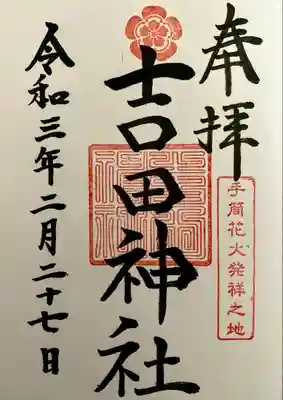 奉拝
手筒花火発祥之地
吉田神社
令和三年二月二十七日